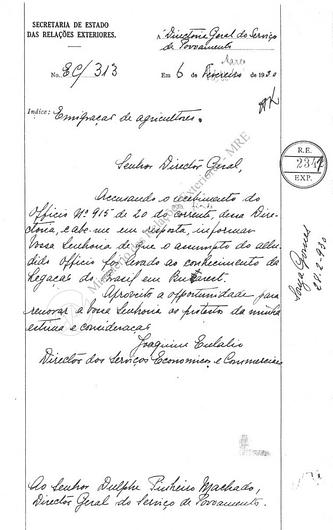 SECRETARIA DE ESTADO
DAS RELAÇÕES EXTERIORES.
Á Directoria Geral do Serviço
de Povoamento
No. EC/313
Março
Em 6 de Fevereiro de 1930
Indice: Emigração de agricultores.
Senhor Director Geral,
R.E.
2342
EXP.
Accusando o recebimento do
Officio Nº 915 de 20 do corrente, dessa Dire-
ctoria, cabe-me em resposta, informar
Vossa Senhoria de que o assumpto do allu-
dido Officio foi levado ao conhecimento da
Legação do Brasil em Bucarest.
Aproveito a opportunidade para
renovar a Vossa Senhoria os protestos da minha
estima e consideração
Joaquim Eulalio
Director dos Serviços Economicos e Commerciaes
Ao Senhor Dulphe Pinheiro Machado,
Director Geral do Serviço de Povoamento.